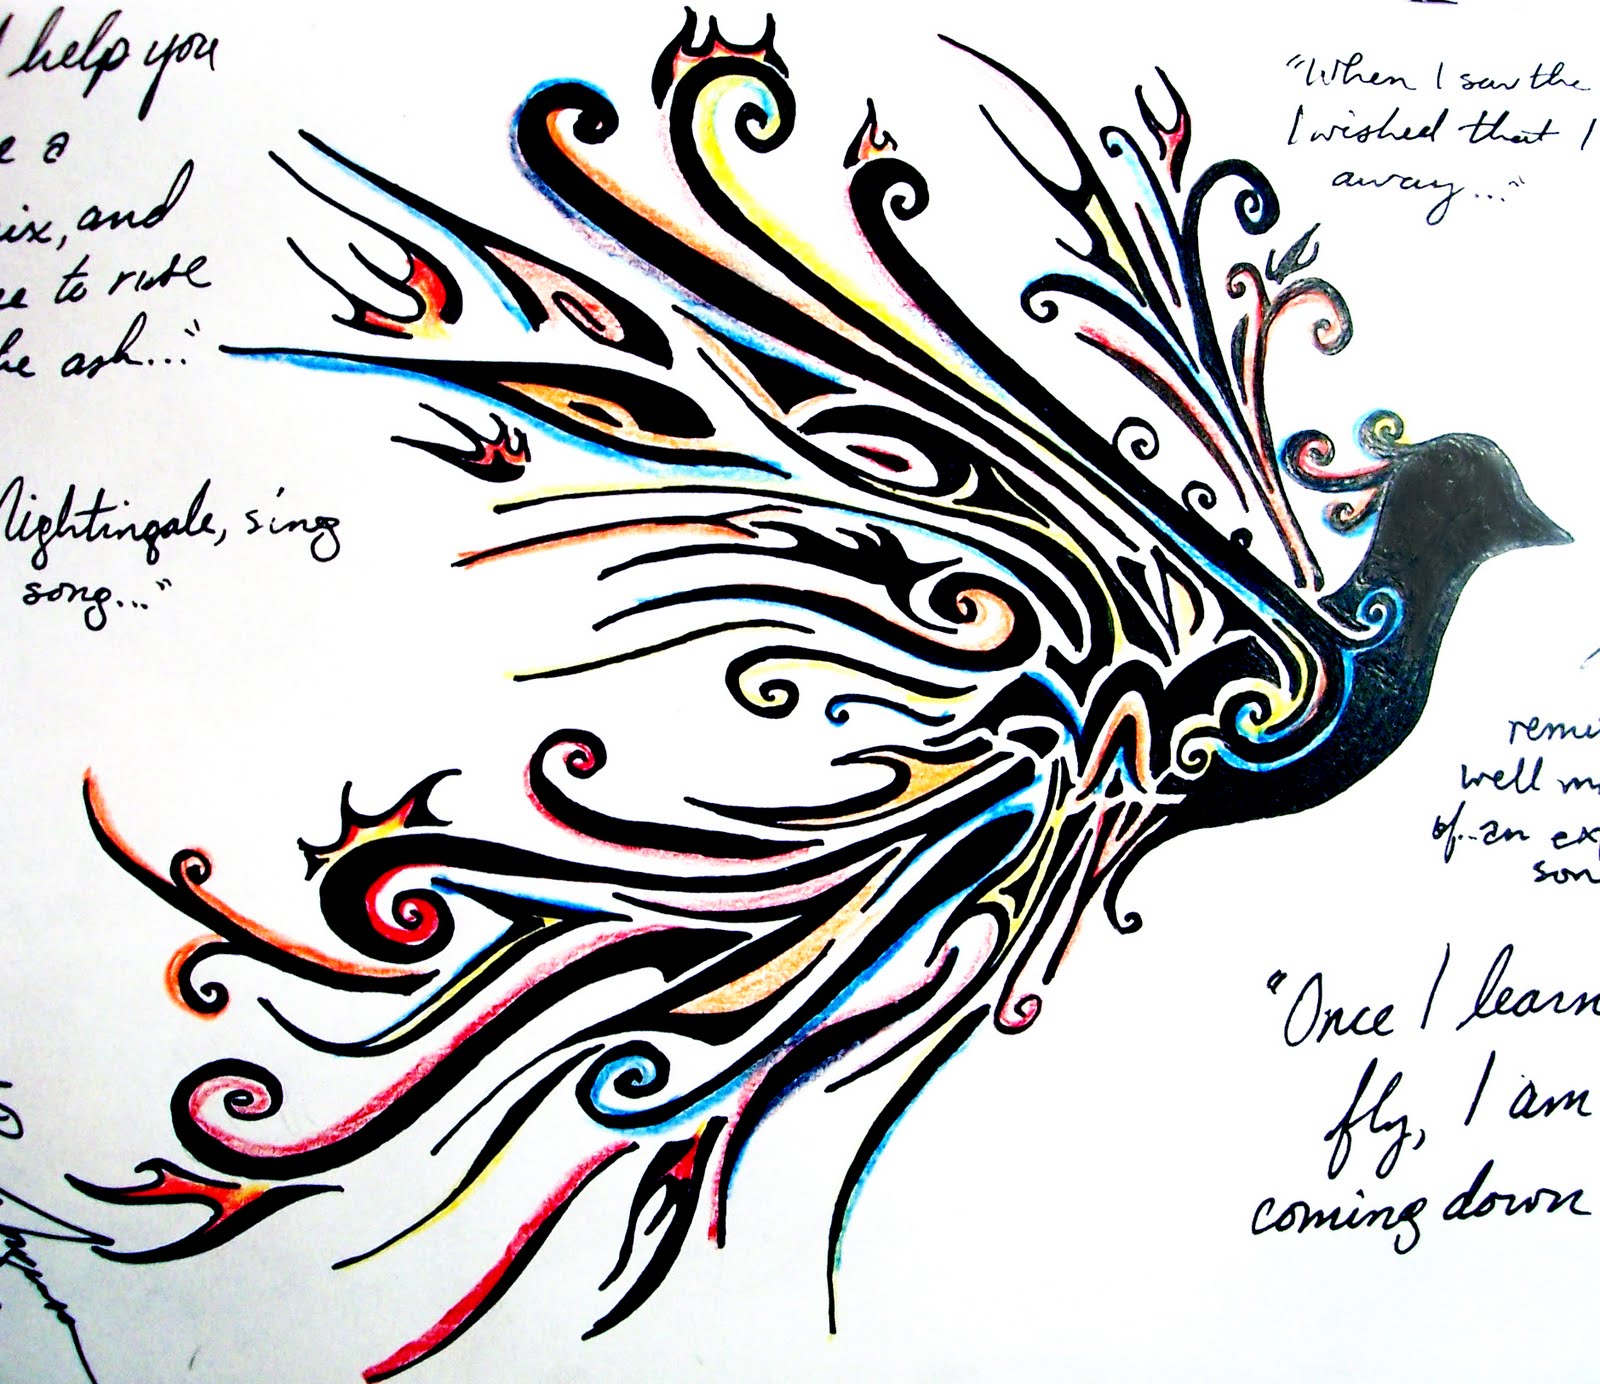 help you
e a
ix, and
e to rise
he ash..."
Nightingale, sing
song..."
"When I saw the
I wished that I
away..."
remi
well m
of...an exp
son
"Once I learn
fly, I am
coming down